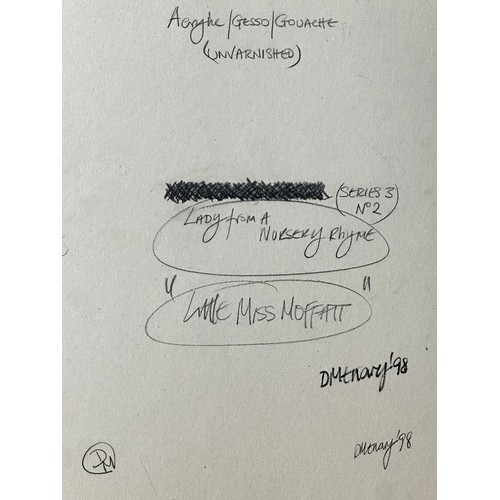 Acrylic/GESSO/GOUACHE
(UNVARNISHED)
(SERIES 3)
Nº2
LADY from A
NURSERY RhyME
" Little MISS MOFFATT "
'98
'98